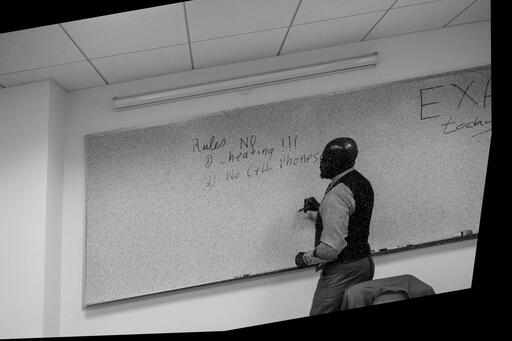 Rules NO
① cheating !!!
② No Cell Phones
EXA
today